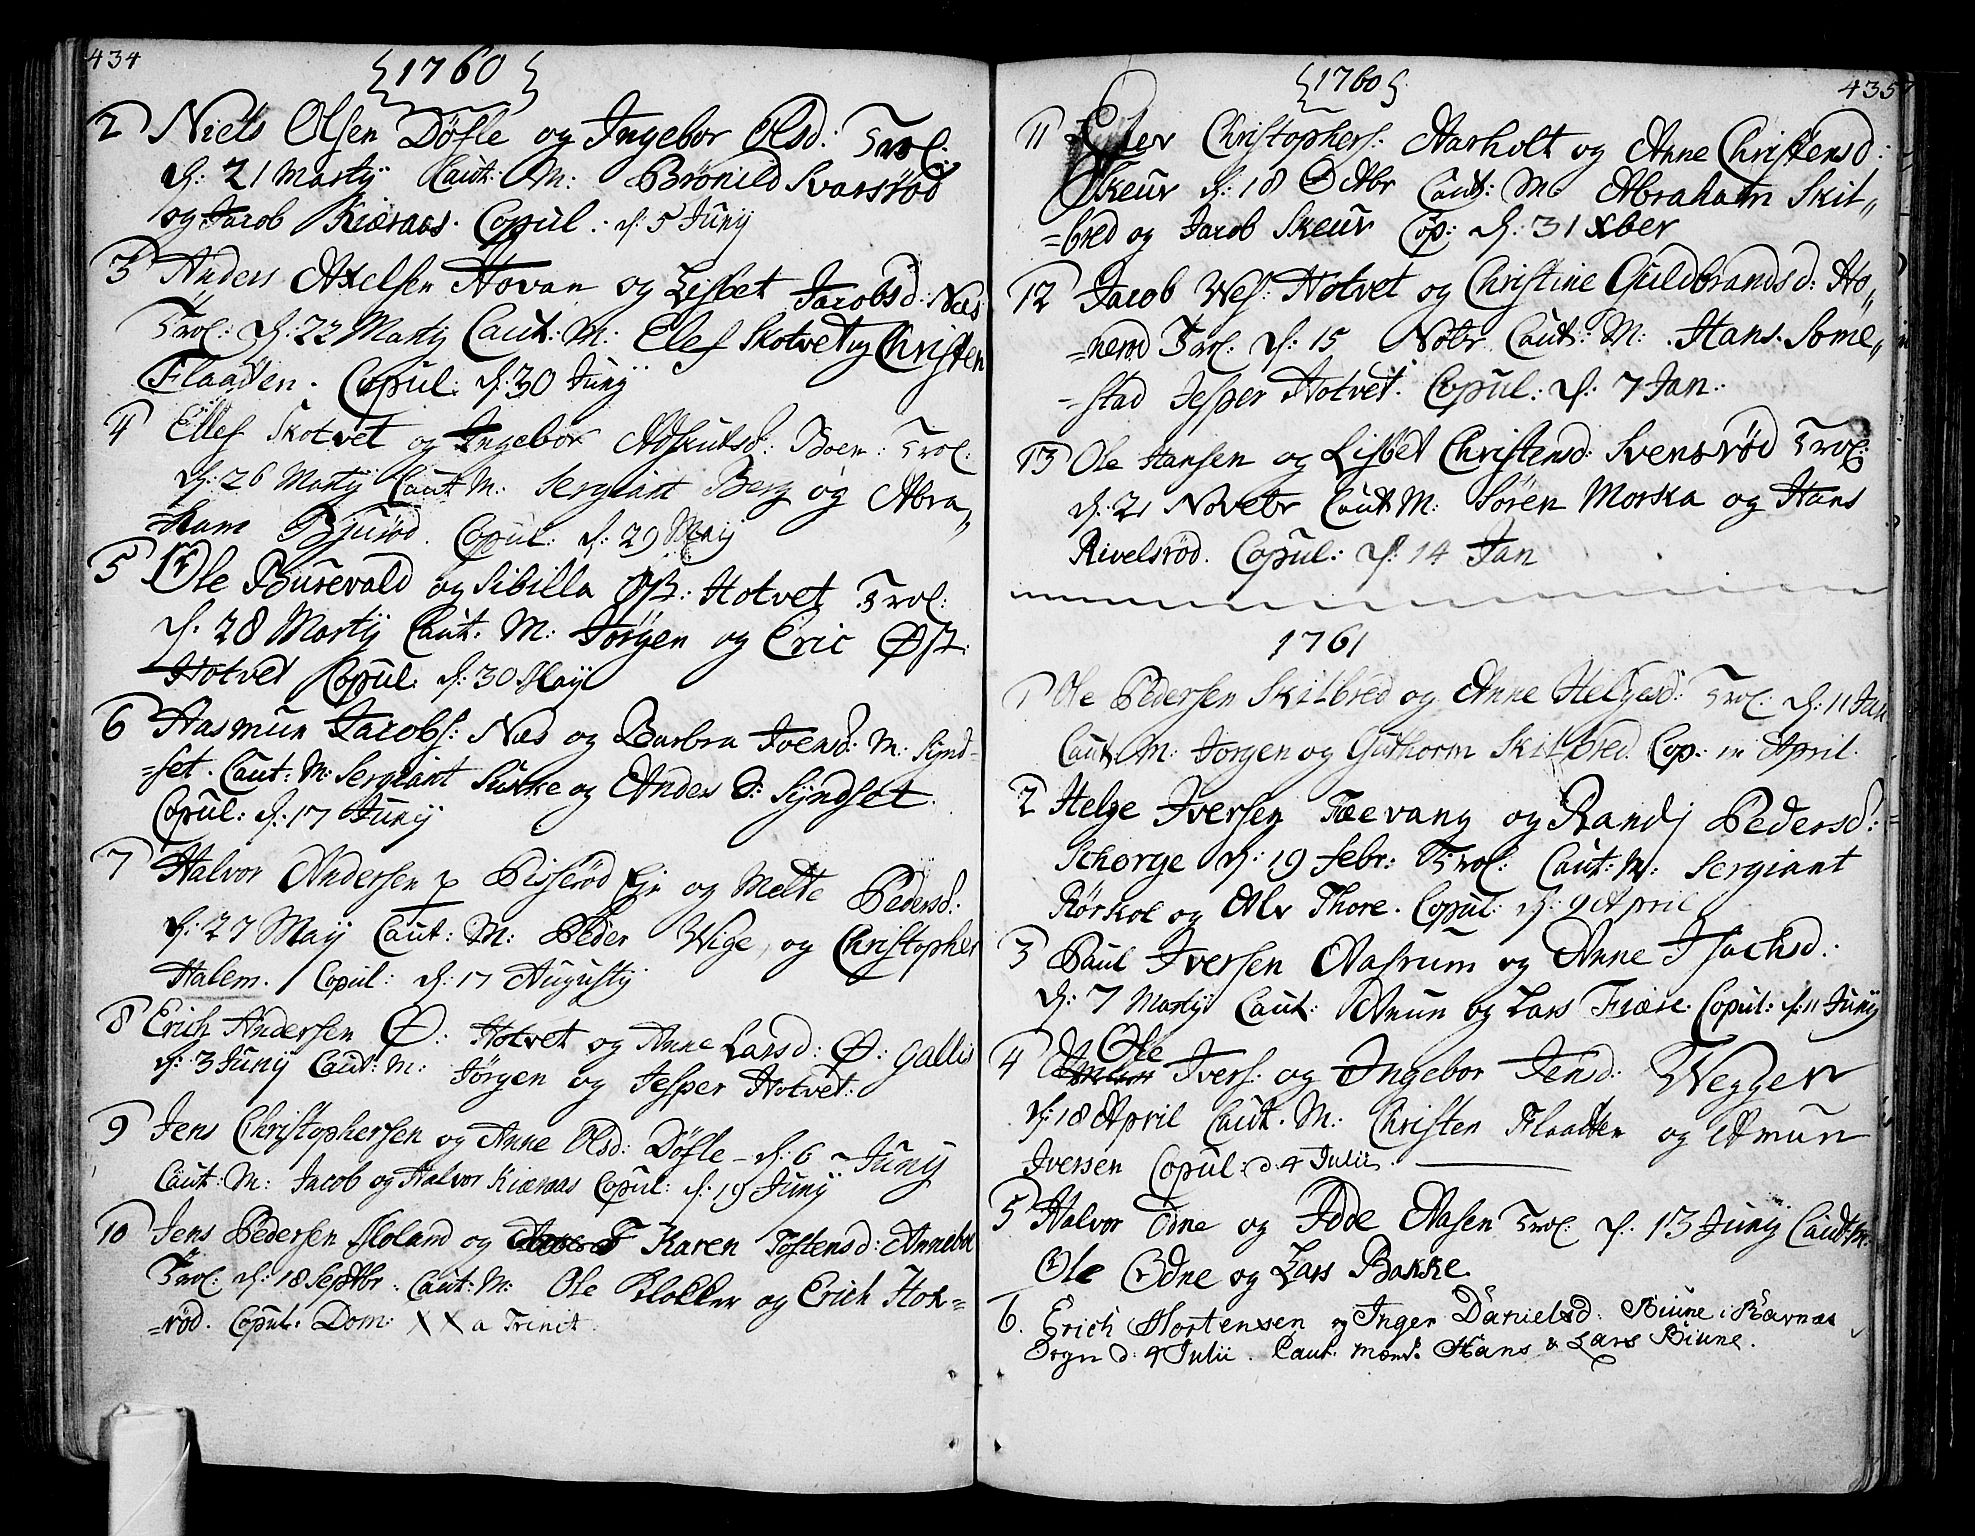 434
1760
2 Niels Olsen Døfle og Ingebor Olsd: Trol:
d: 21 Martij Caut: M: Brønild Svarsrød
og Jacob Kiæraas. Copul: d: 5 Junij
3 Anders Axelsen Hovan og Lisbet Jacobsd: Næs
Trol: d: 22 Martij Caut: M: Elef Skotvet og Christen
Flaaden. Copul: d: 30 Junij
4 Ellef Skotvet og Ingebor Askutsd: Boen: Trol:
d: 26 Martij Caut M: Sergiant Berg og Abra„
=ham Bjurød. Copul: d: 29 Maij
5 Ole Burevald og Sibilla Øst: Hotvet Trol:
d. 28 Martij Caut. M: Jørgen og Eric Øst:
Hotvet Copul: d: 30 May
6 Aasmun Jacobs: Næs og Barbra Ivensd: M: Synd-
=set. Caut: M: Sergiant Surke og Anders S: Syndset.
Copul: d: 17 Junij
7 Halvor Andersen p Pisserød Eje og Mette Pedersd:
d: 27 Maij Caut: M: Peder Wige, og Christopher
Halem. Copul: d: 17 Augustij
8 Erich Andersen Ø: Hotvet og Anne Larsd: Ø: Gallis
d: 3 Junij Caut: M: Jørgen og Jesper Hotvet:
9 Jens Christophersen og Anne Olsd: Døfle – d: 6 – Junij
Caut: M: Jacob og Halvor Kiæraas Copul: d: 19 Junij
10 Jens Pedersen Holand og Karen Tostensd: Annebol
Trol: d: 18 Septbr. Caut: M: Ole Klokker og Erich Hox=
=rød. Copul: Dom: XX a Trinit.
435
1760
11 Elev Christophers: Aarholt og Anne Christensd:
Skeur d: 18 Octbr Caut: M: Abraham Skil„
=bred og Jacob Skeur Cop: d: 31 xber
12 Jacob Wes: Hotvet og Christine Guldbrandsd: Ho„
=nerød Trol: d: 15 Nobr Caut: M: Hans. Søme„
-stad Jesper Hotvet. Copul: d: 7 Jan.
13 Ole Hansen og Lisbet Christensd: Svensrød Trol:
d. 21 Novebr Caut M: Søren Morska og Hans
Rivelsrød. Copul: d: 14 Jan
1761
1 Ole Pedersen Skilbred og Anne Helgesd: Trol: d: 11 Jan
Caut: M: Jorgen og Guthorm Skilbred. Cop: in April
2 Helge Iversen Fæevang og Randj Pedersd:
Schorge d: 19 Febr: Trol: Caut: M: Sergiant
Rørkol og Alv Thore. Copul: d: 9 April
3 Paul Iversen Aasrum og Anne Isachsd:
d: 7 Martij Caut: Amun og Lars Fiære. Copul: d: 11 Junij
4 Ole Ivers: og Ingebor Jensd: Wegger
d: 18 April Caut. M: Christen Flaatten og Amun
Iversen Copul: d. 4 Julii.
5 Halvor Odne og Idde Aasen Trol: d: 13 Junij Caut: M:
Ole Odne og Lars Bakke
6. Erich Hortensen og Inger Danielsd: Biune i Ravnæs
Sogn d: 4 Julii. Caut: Mænd: Hans & Lars Biune.